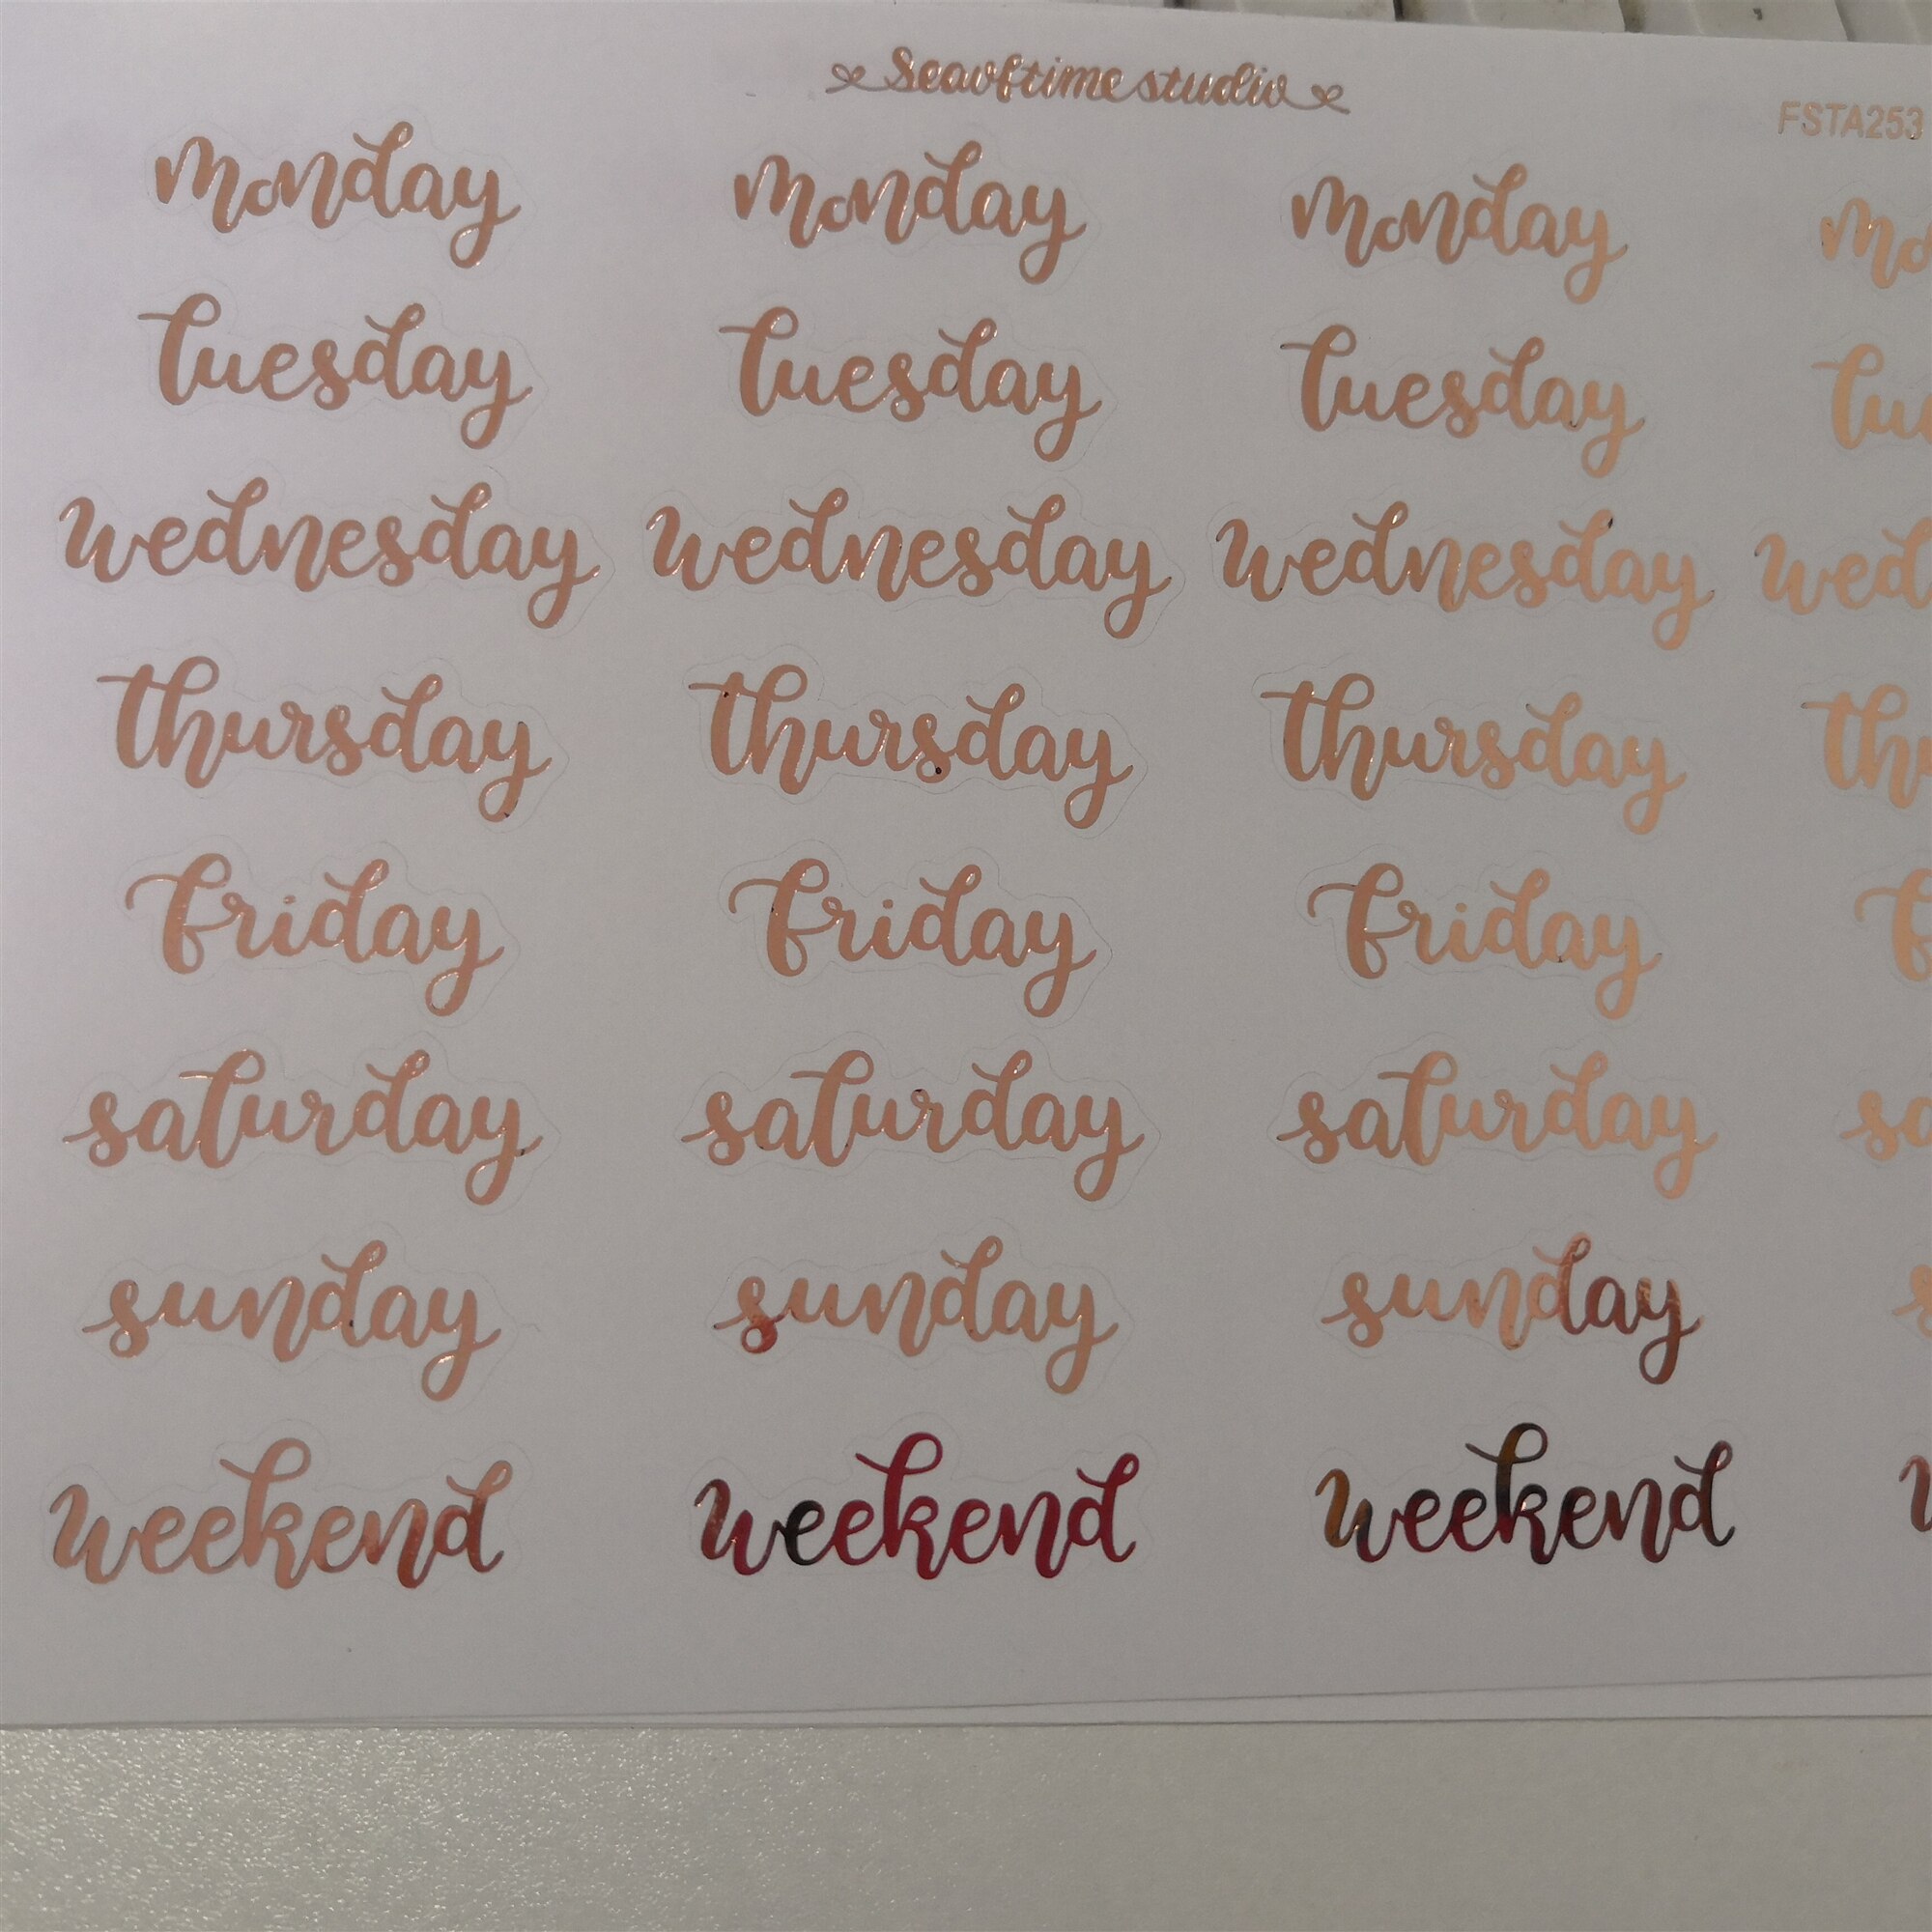 Seavftime studio
FSTA253
monday monday monday mo
tuesday tuesday tuesday tu
wednesday wednesday wednesday wed
thursday thursday thursday thu
friday friday friday f
saturday saturday saturday sa
sunday sunday sunday s
weekend weekend weekend